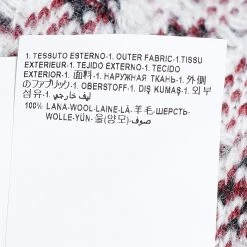 1. TESSUTO ESTERNO-1. OUTER FABRIC-1.TISSU
EXTERIEUR-1. TEJIDO EXTERNO-1. TECIDO
EXTERIOR-1. 面料-1. НАРУЖНАЯ ТКАНЬ-1. 外側
のファブリック-1. OBERSTOFF-1. DIŞ KUMAŞ-1. 외부
섬유-1. ليف خارجي
100% LANA-WOOL-LAINE-LÃ-羊毛-ШЕРСТЬ-
WOLLE-YÜN-울(양모)-صوف